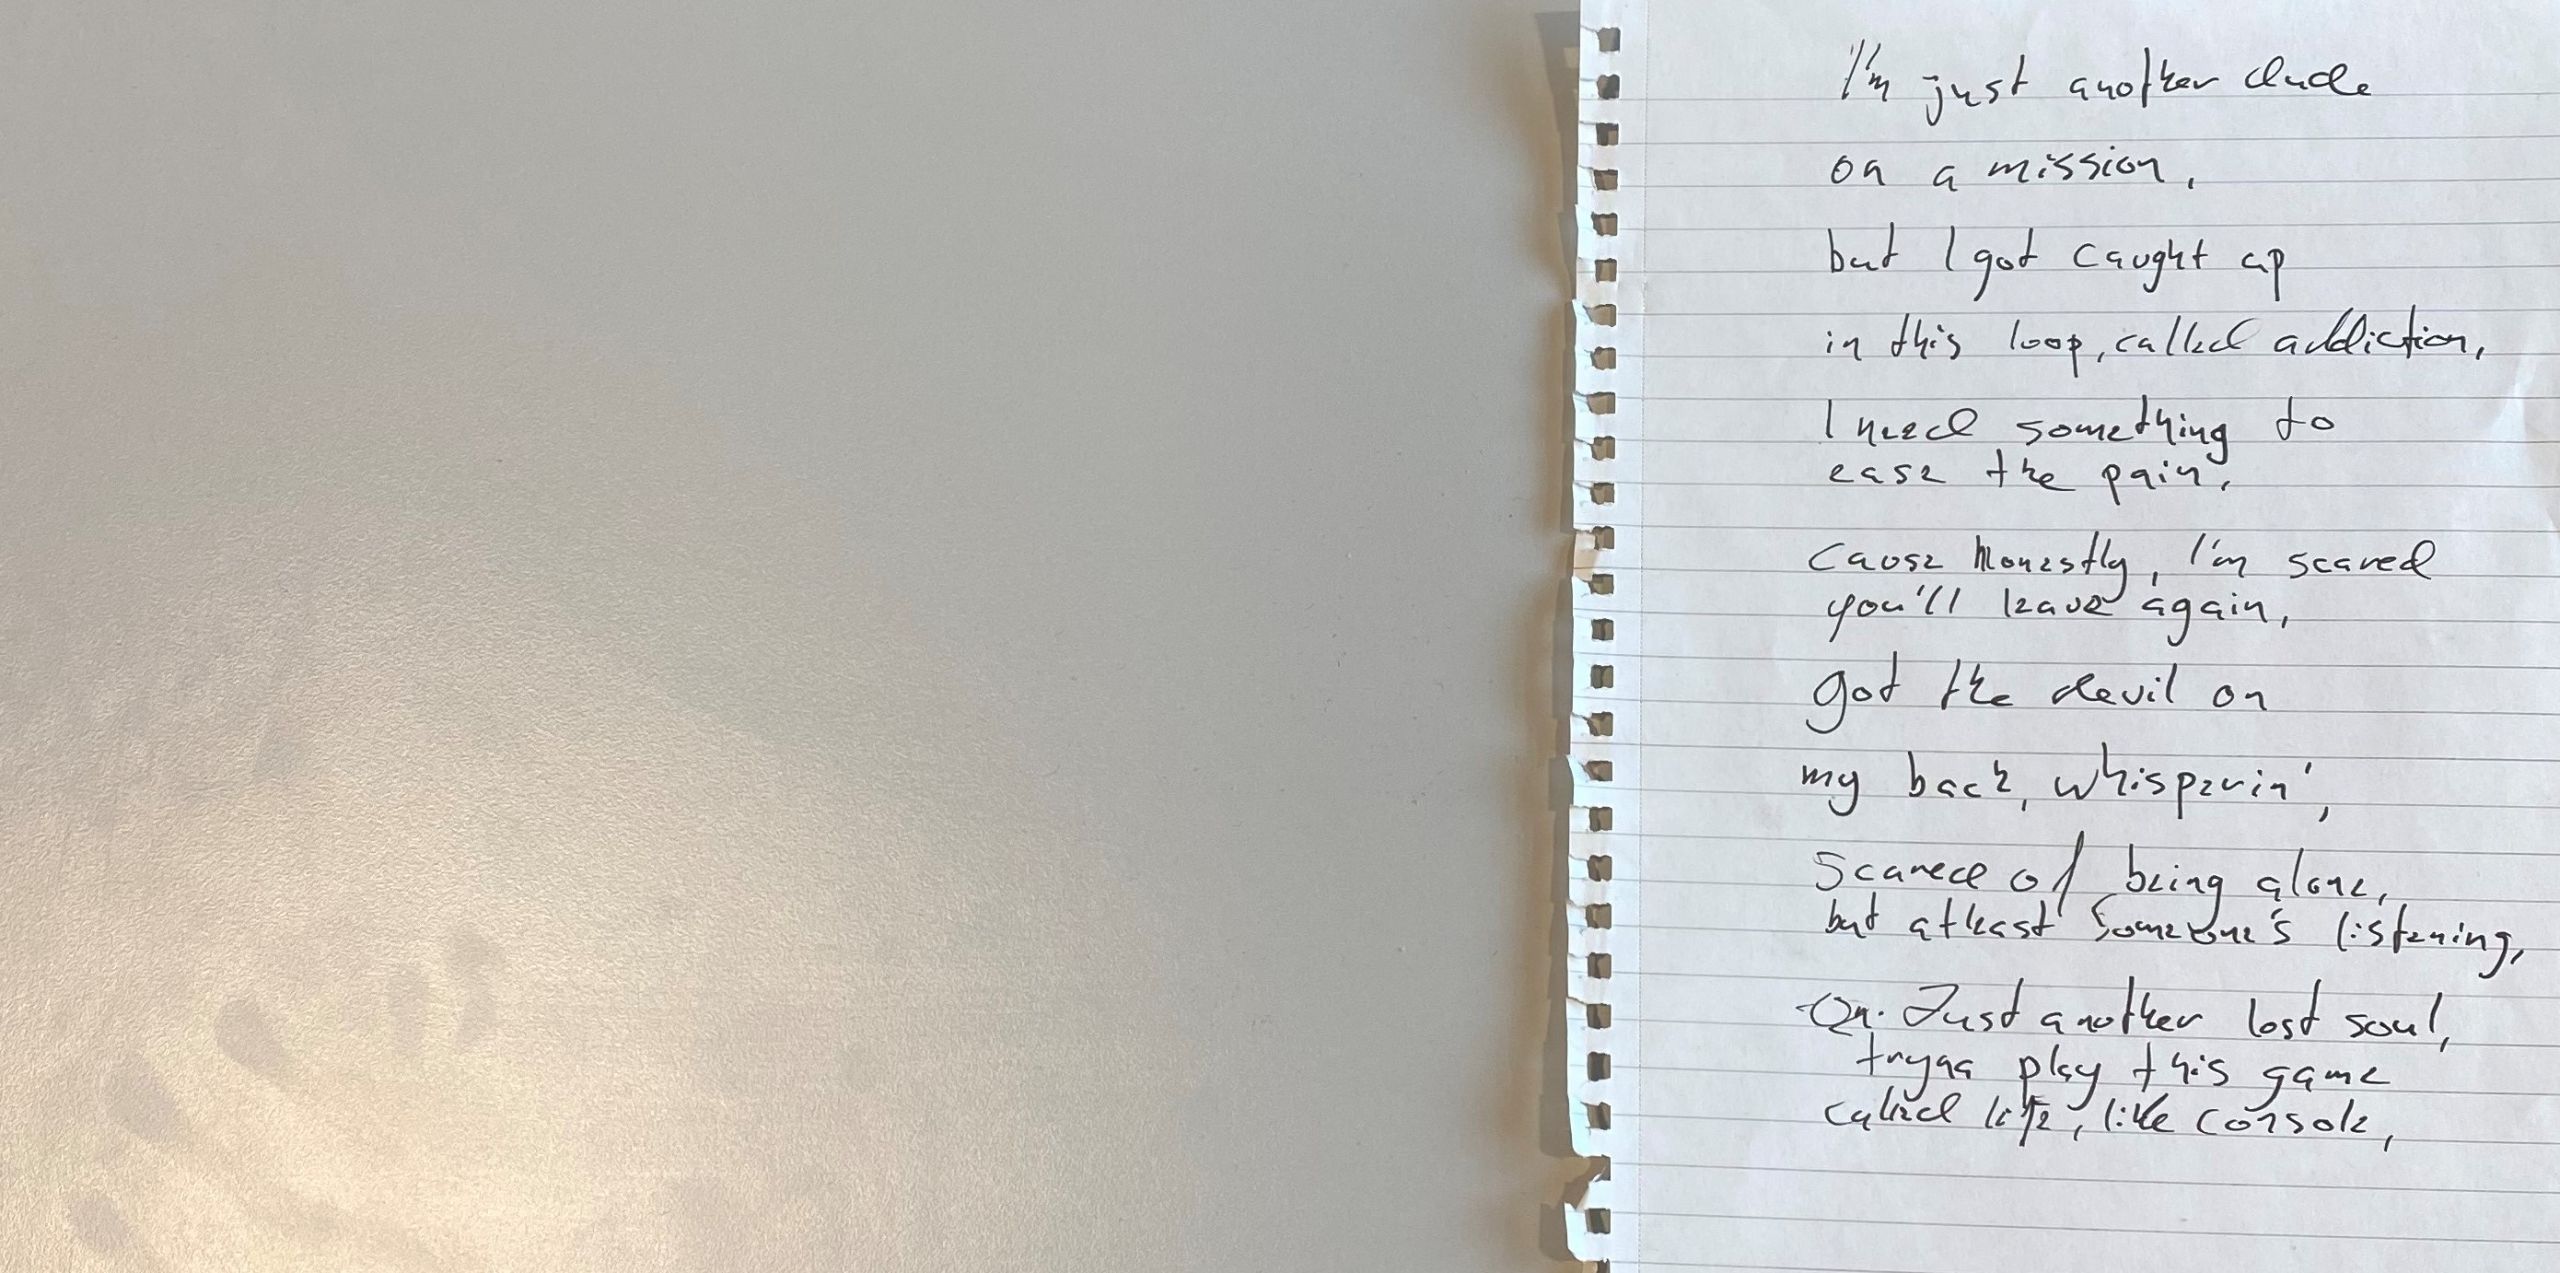 I'm just another dude
on a mission,
but I got caught up
in this loop, called addiction,
I need something to
ease the pain,
cause honestly, I'm scared
you'll leave again,
got the devil on
my back, whisperin',
Scared of being alone,
but atleast someone's listening,
Just another lost soul,
tryna play this game
called life, like console,